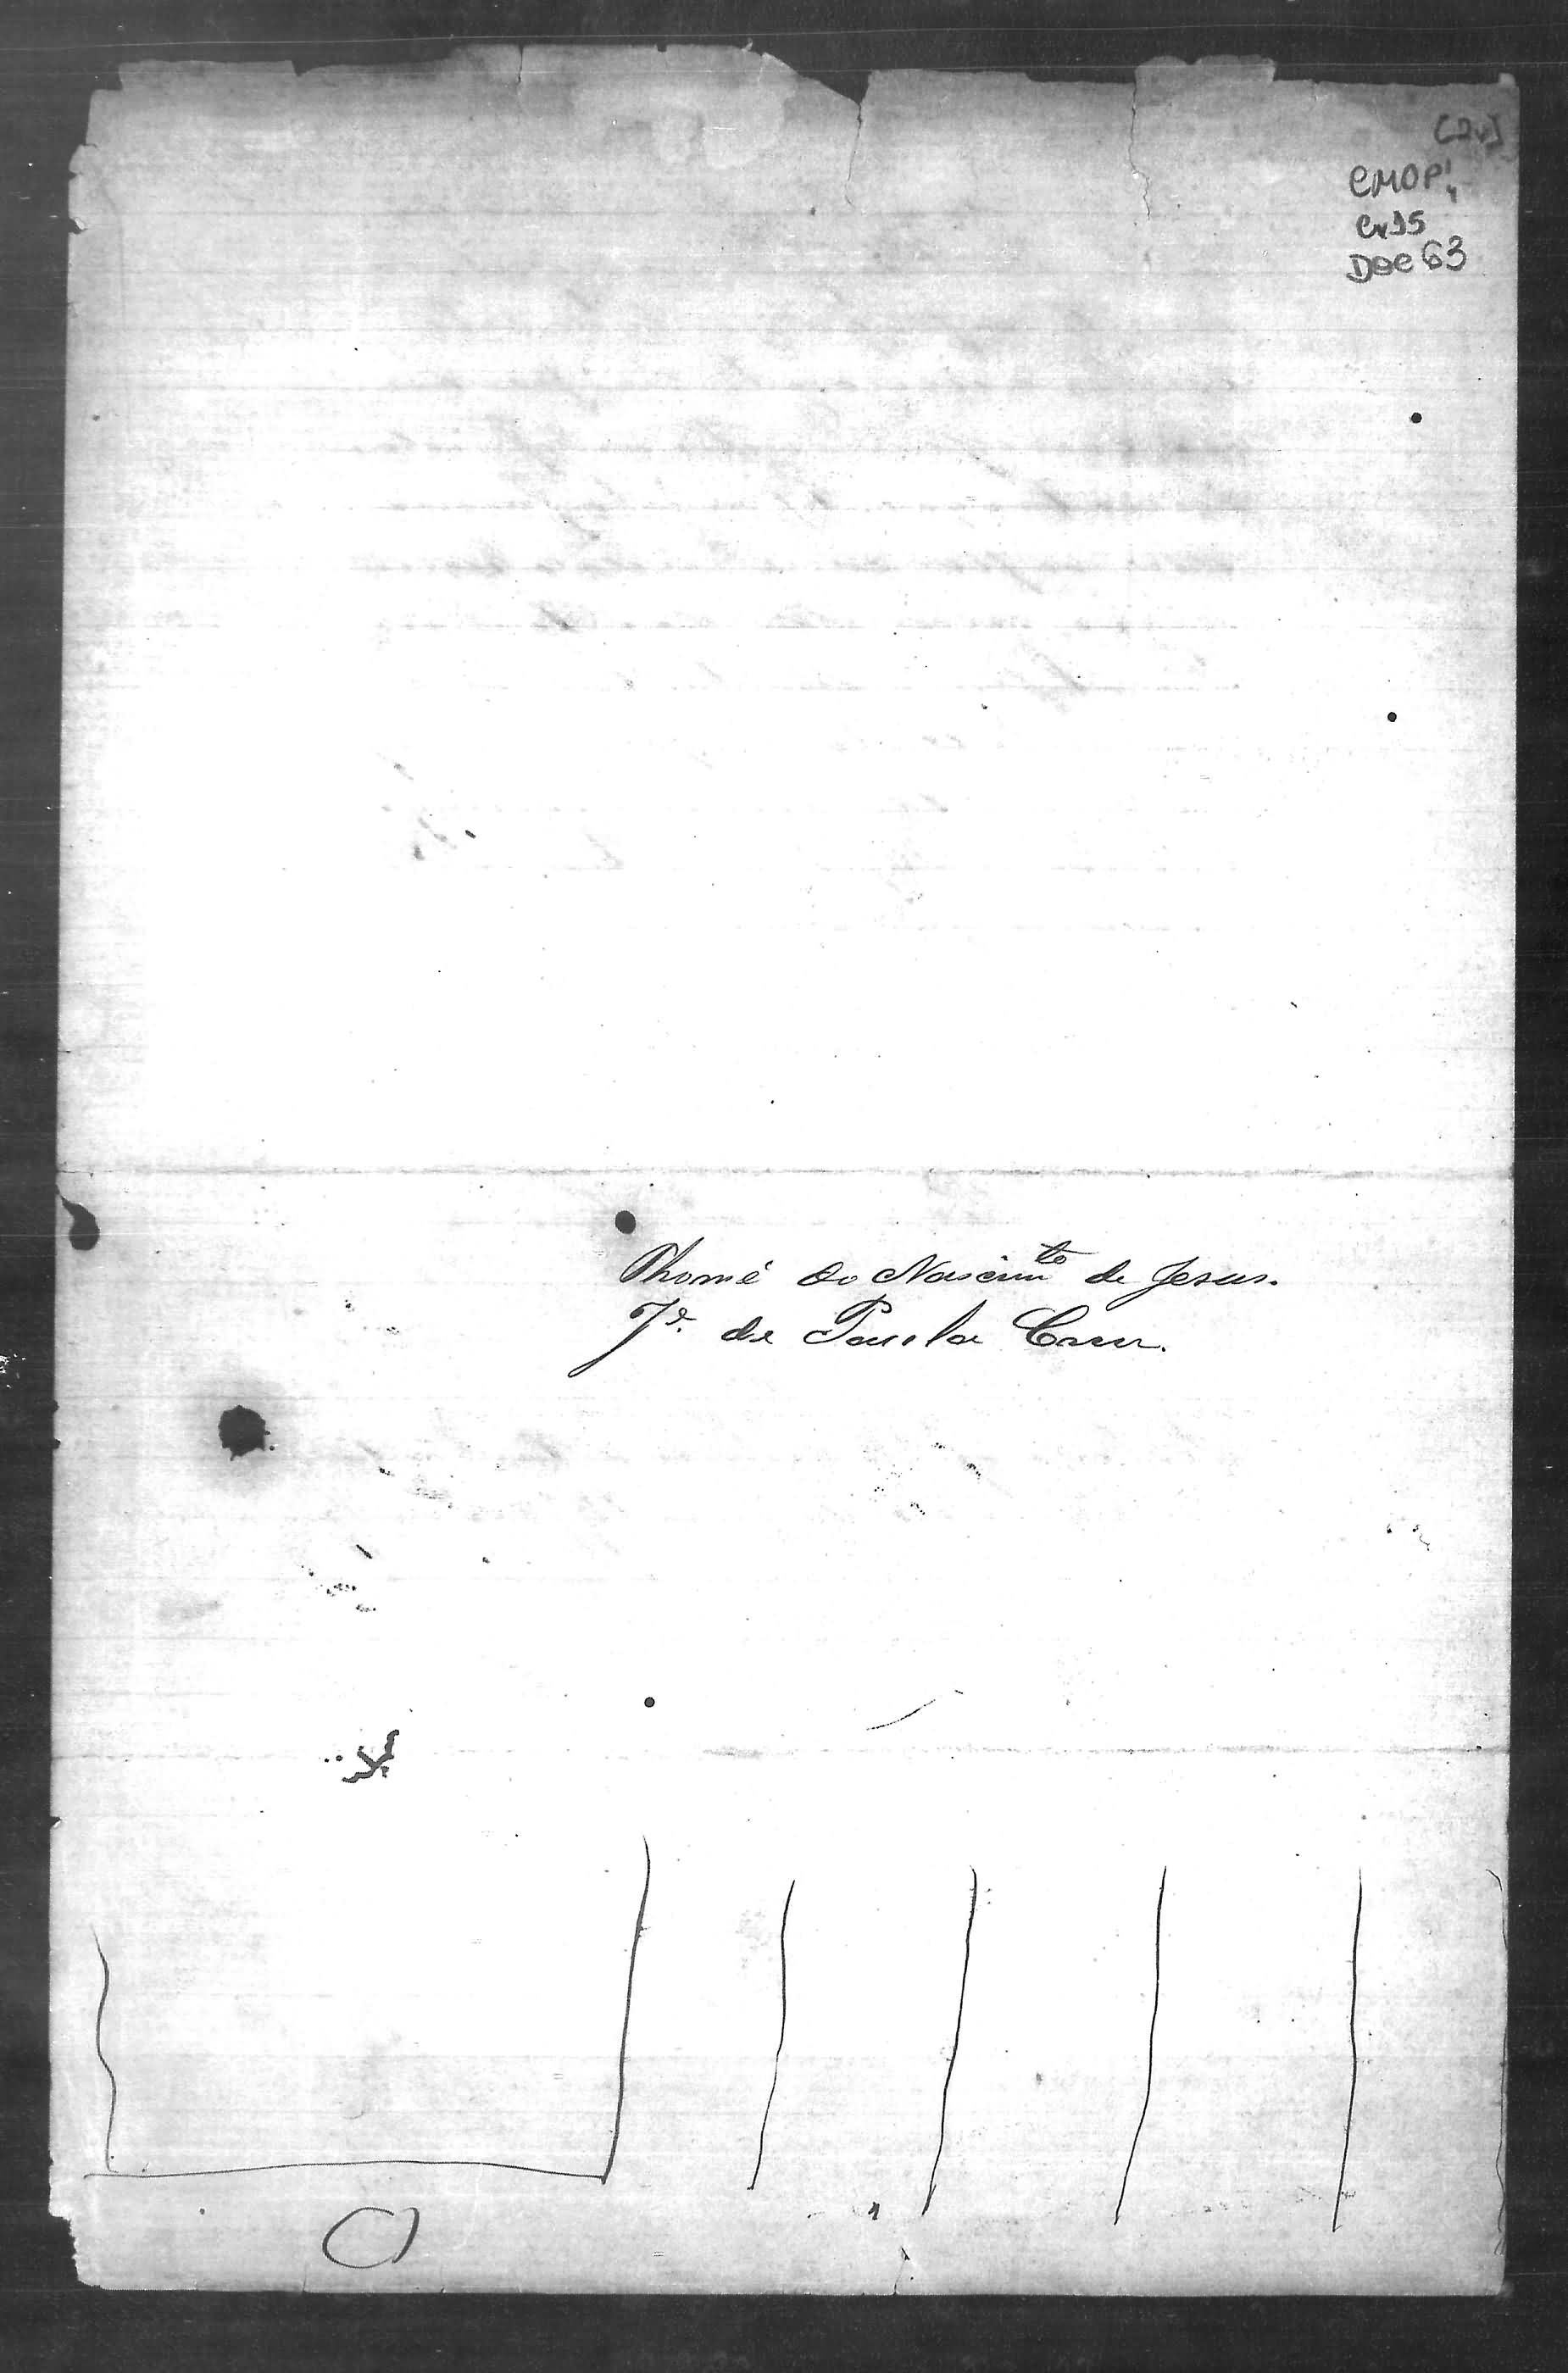 [2v]
CMOP
Cx15
Doc 63
Thomé do Nascim^to de Jesus.
J^e. de Paula